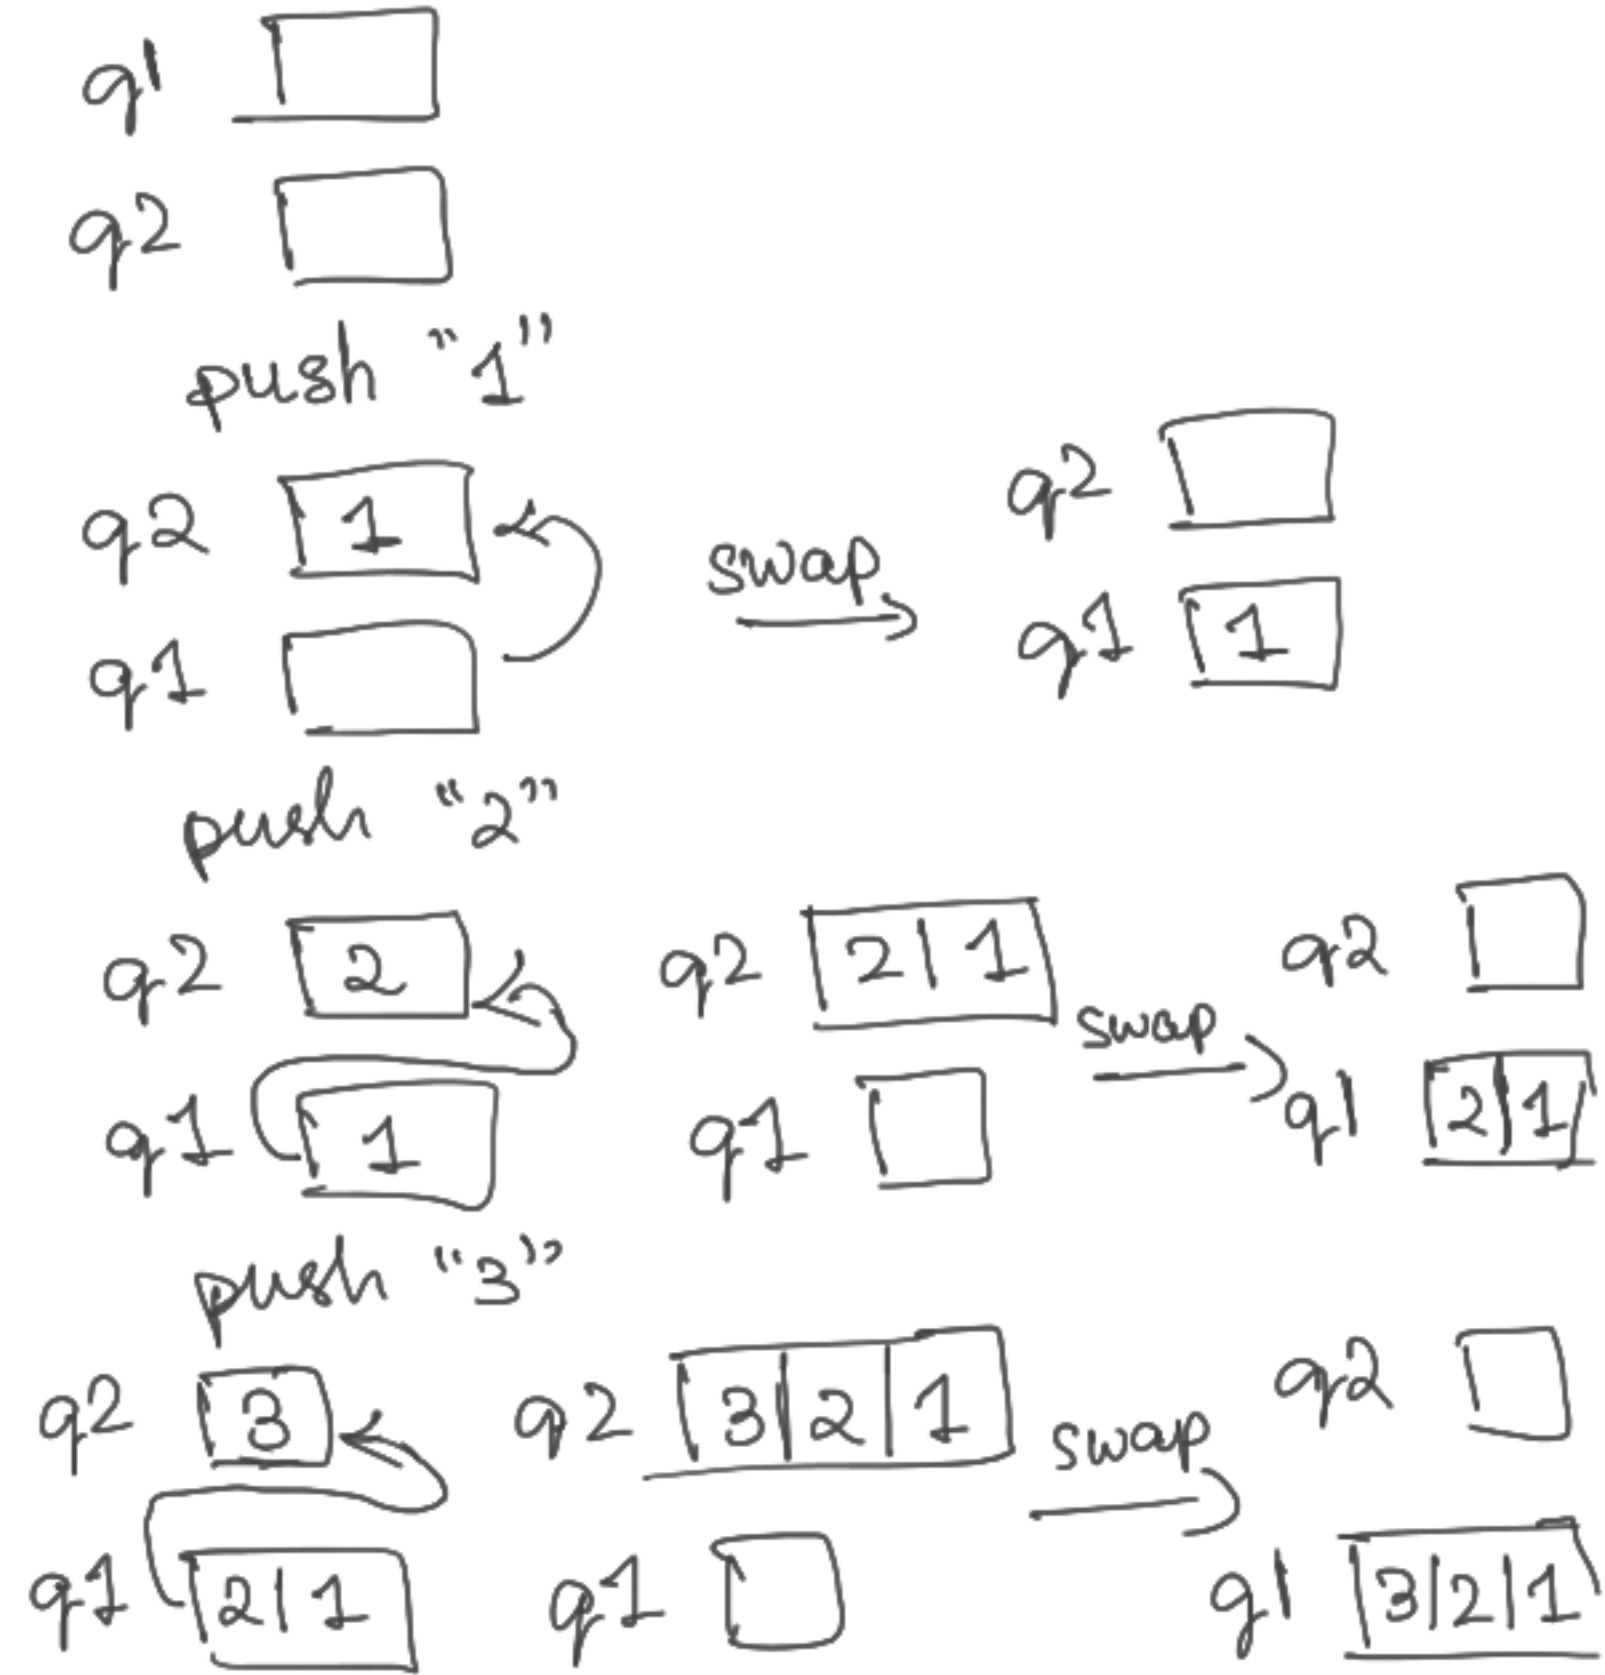 q1
q2
push "1"
q2 1
q1
swap
q2
q1 1
push "2"
q2 2
q1 1
q2 2 1
q1
swap
q2
q1 2 1
push "3"
q2 3
q1 2 1
q2 3 2 1
q1
swap
q2
q1 3 2 1